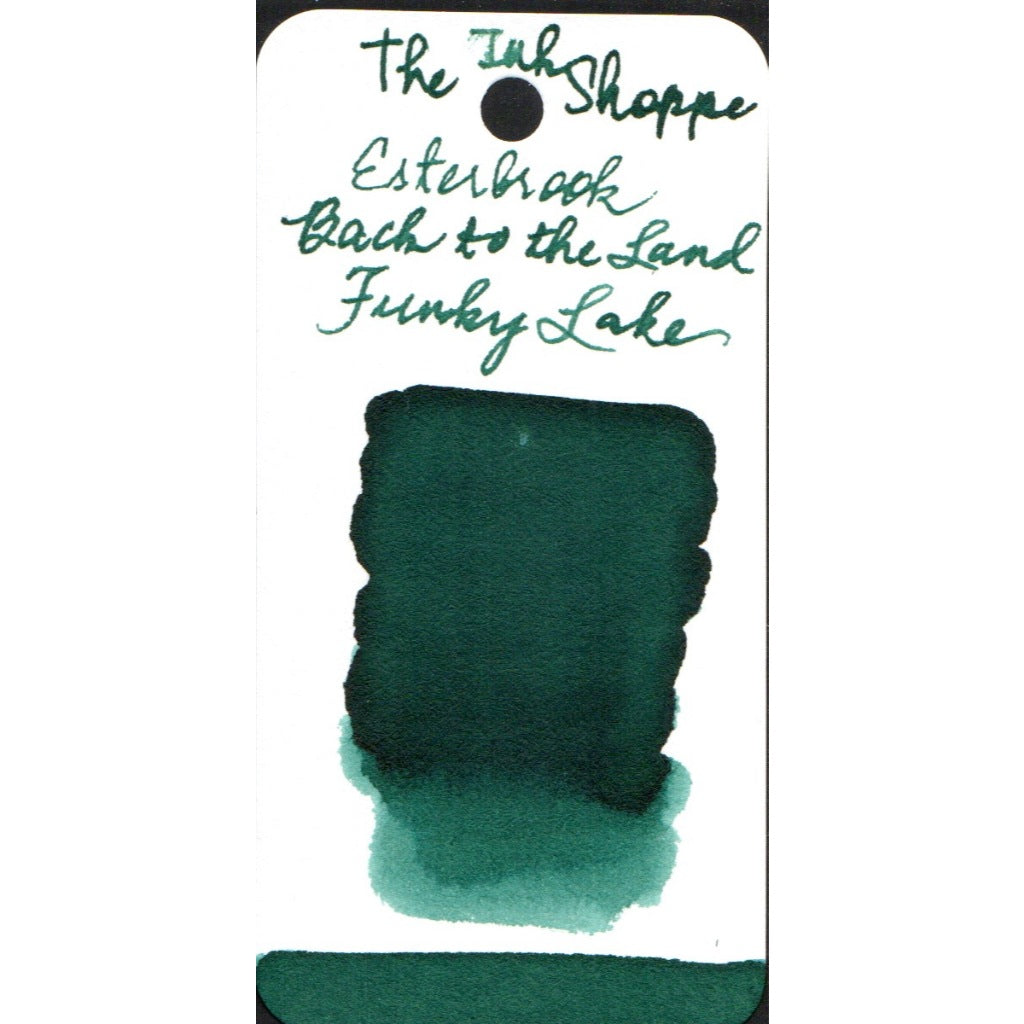 The Ink Shoppe
Esterbrook
Back to the Land
Funky Lake